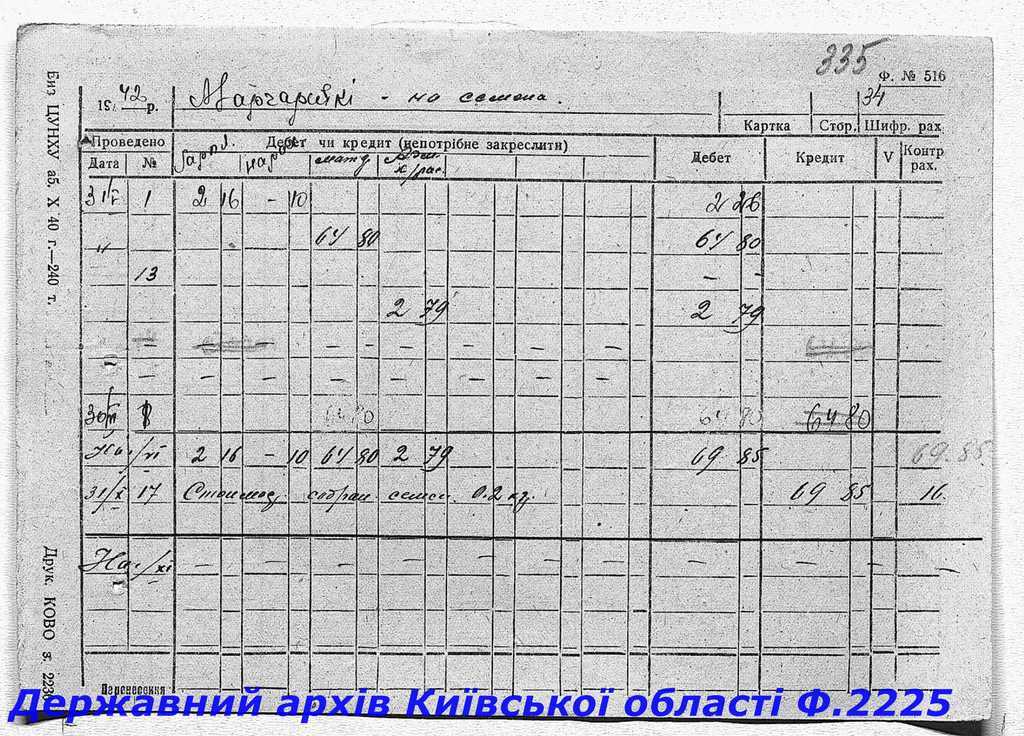 335
Ф. № 516
19 42 р. Маргаритки - на семена. 34
Картка Стор. Шифр. рах.
Проведено Дебет чи кредит (непотрібне закреслити) Дебет Кредит V Контр рах.
Дата № Зарпл. нарах. матер. Адм. х/рас.
31/V 1 2 16 - 10 2 26
" 64 80 64 80
13 - -
2 79 2 79
- - - - - - -
- - - - - - - -
30/VI 8 64 80 64 80 64 80
На 1/XI 2 16 - 10 64 80 2 79 69 85 69.85
31/X 17 Стоимос. собран. семен. 0.2 кг. 69 85 16
На 1/XI - - - - - - - - - -
Перенесення
Биз ЦУНХУ аб. X 40 г.—240 т.
Друк. КОВО з. 223
Державний архів Київської області Ф.2225